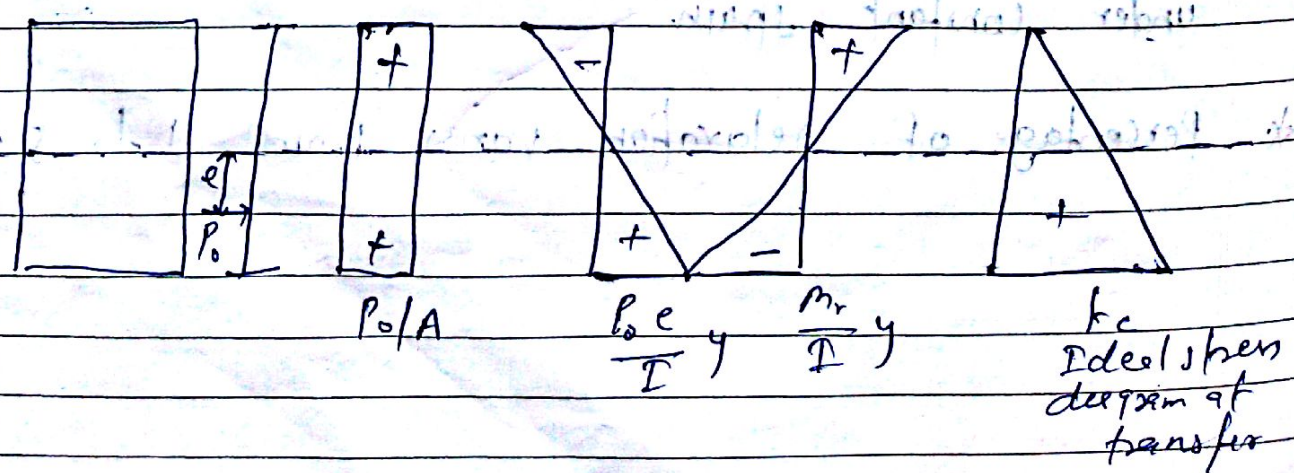 e
P₀
+
+
-
+
+
-
+
P₀/A
P₀ e / I y
Mr / I y
fc
Ideal stress
diagram at
transfer